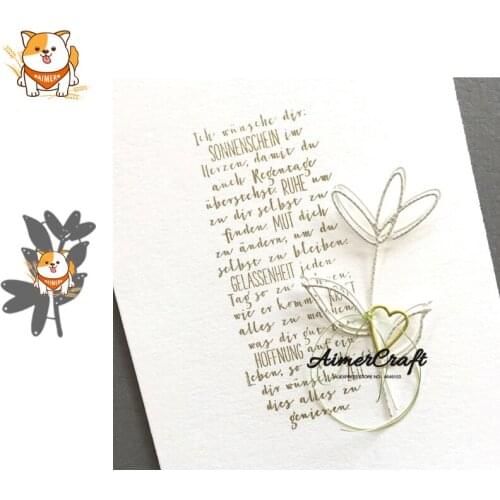 AIMER
Ich wünsche dir:
SONNENSCHEIN im
Herzen, damit du
auch Regentage
überstehst. RUHE um
zu dir selbst zu
finden. MUT dich
zu ändern, um du
selbst zu bleiben.
GELASSENHEIT jeden
Tag so zu
wie er kommt.
alles zu
was dir gut
HOFFNUNG auf ein
AimerCraft
ALIEXPRESS STORE NO.:
Leben, so
dir wünschst
dies alles zu
geniessen.